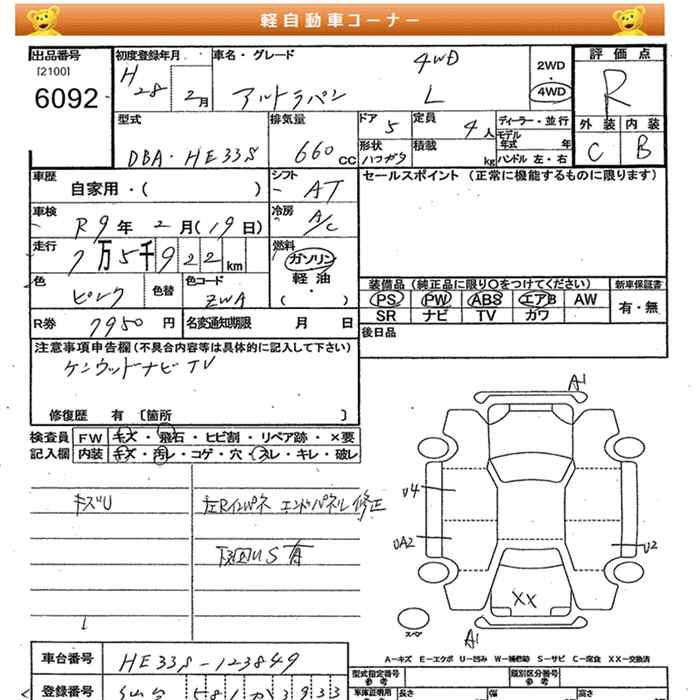 軽自動車コーナー
出品番号
[2100]
6092
初度登録年月
H28 2月
車名・グレード
アルトラパン
4WD
L
2WD
・
4WD
評価点
R
外装 内装
C B
型式
DBA・HE33S
排気量
660cc
ドア 5
形状
ハコガタ
定員 4人
積載 kg
ディーラー・並行
モデル
年式 年
ハンドル 左・右
車歴
自家用・( )
シフト
AT
セールスポイント (正常に機能するものに限ります)
車検
R9年 2月(19日)
冷房
A/C
走行
7万5千922km
燃料
ガソリン
軽油
( ・ )
色
ピンク
色替
色コード
ZWA
装備品 (純正品に限り○をつけてください) 新車保証書
PS PW ABS エアB AW 有・無
SR ナビ TV カワ
R券 7950円
名変通知期限 月 日
後日品
注意事項申告欄(不具合内容等は具体的に記入して下さい)
ケンウッドナビ TV
修復歴 有 〔箇所 〕
検査員 FW キズ・飛石・ヒビ割・リペア跡・×要
記入欄 内装 キズ・汚レ・コゲ・穴・スレ・キレ・破レ
キズU
左Rインパネ エンドパネル修正
下回US有
A1
U4
UA2
U2
XX
スペア
A1
A-キズ E-エクボ U-凹み W-補修跡 S-サビ C-腐食 XX-交換済
車台番号 HE33S-123849
登録番号
型式指定番号
参考
類別区分番号
参考
車庫証明用
長さ 幅 高さ